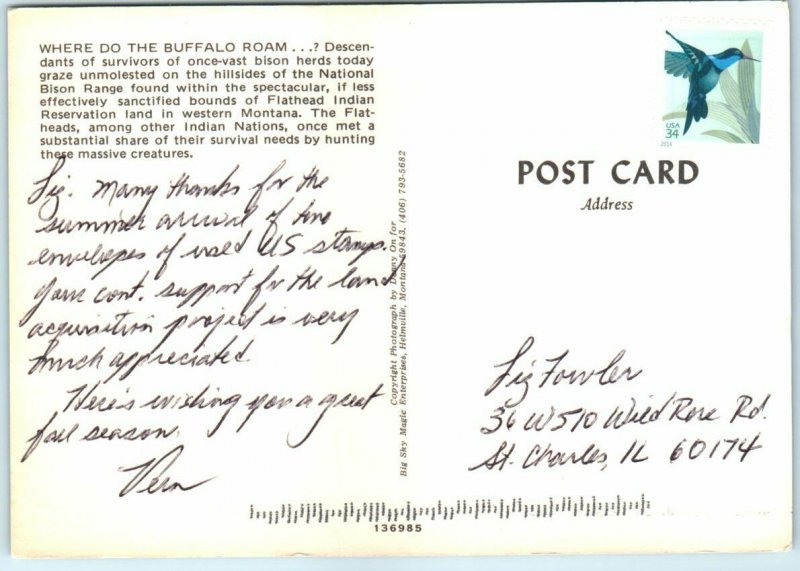 WHERE DO THE BUFFALO ROAM . . .? Descen-
dants of survivors of once-vast bison herds today
graze unmolested on the hillsides of the National
Bison Range found within the spectacular, if less
effectively sanctified bounds of Flathead Indian
Reservation land in western Montana. The Flat-
heads, among other Indian Nations, once met a
substantial share of their survival needs by hunting
these massive creatures.
Liz. Many thanks for the
summer arrival of two
envelopes of used US stamps.
Your cont. support for the land
acquisition project is very
much appreciated.
Here's wishing you a great
fall season.
Vern
Copyright Photograph by Danny On for
Big Sky Magic Enterprises, Helmville, Montana 59843, (406) 793-5682
USA
34
2014
POST CARD
Address
Liz Fowler
36 W510 Wild Rose Rd.
St. Charles, IL 60174
136985